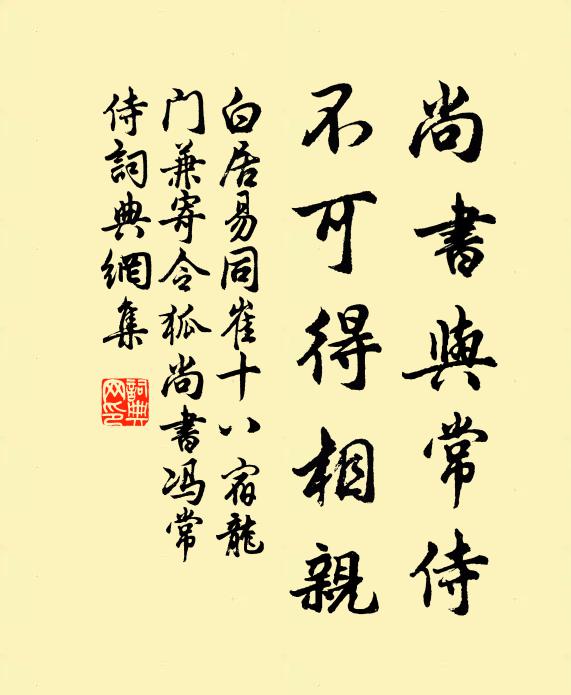 尚書與常侍
不可得相親
白居易同崔十八宿龍
门兼寄令狐尚書冯常
侍詞典網集
詞典网印